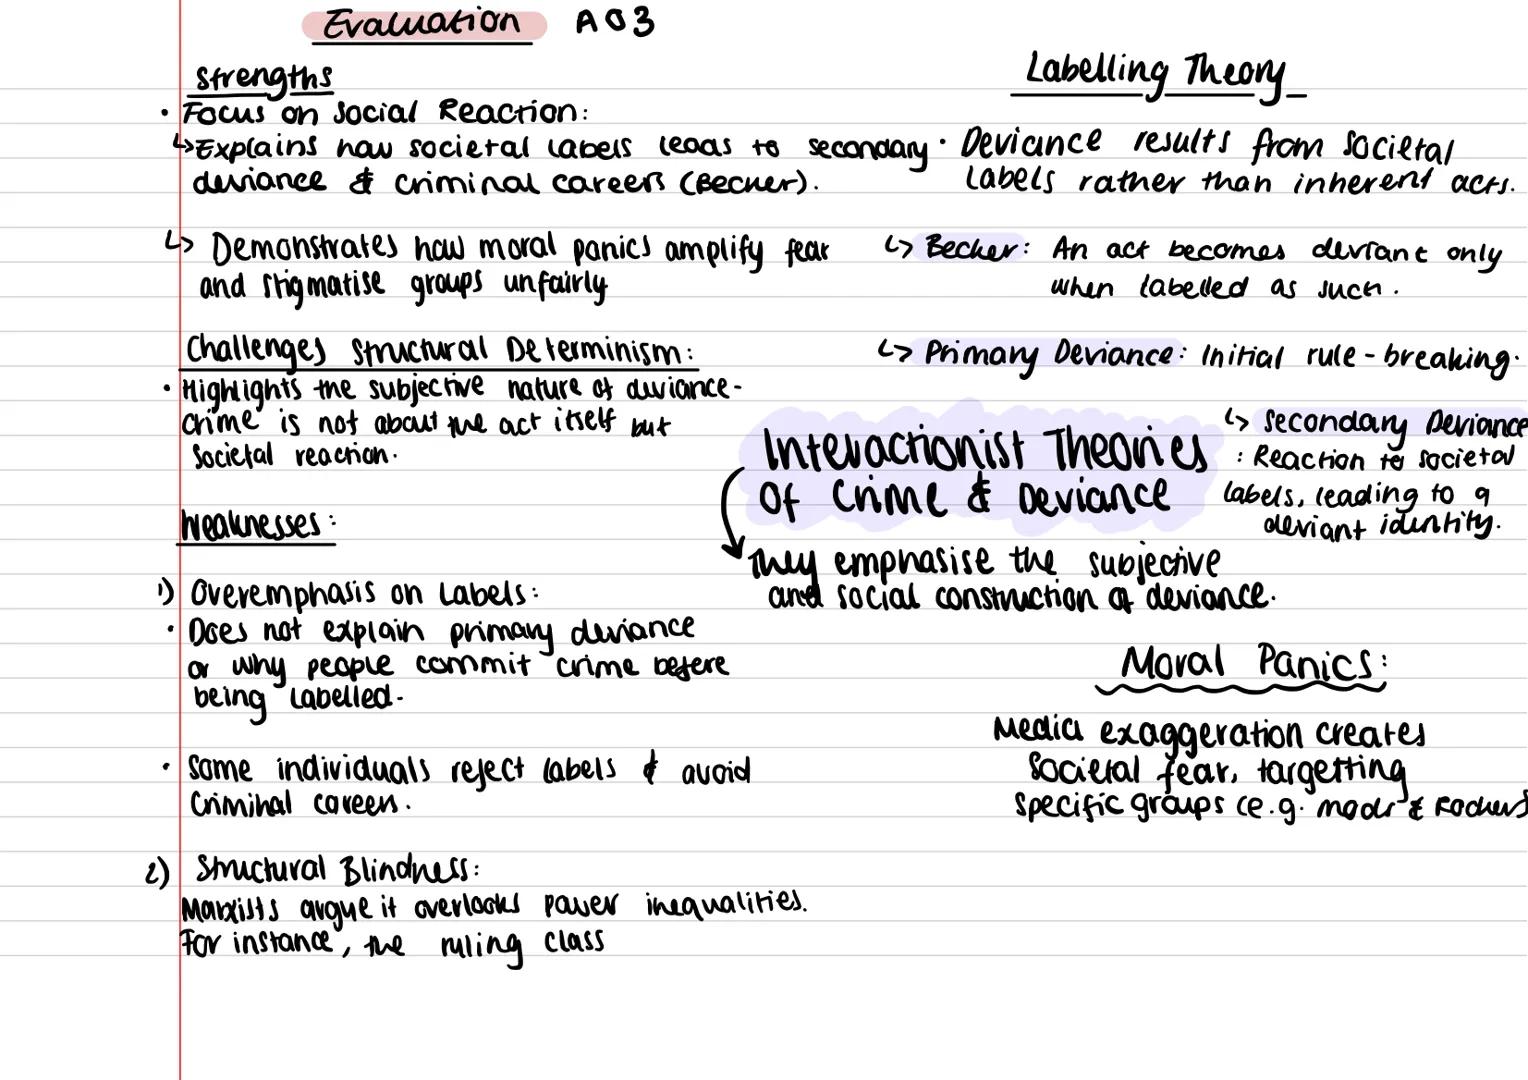 Evaluation AO3
Strengths
• Focus on Social Reaction:
↳ Explains how societal labels leads to secondary
deviance & criminal careers (Becker).
↳ Demonstrates how moral panics amplify fear
and stigmatise groups unfairly
Challenges Structural Determinism:
• Highlights the subjective nature of deviance-
crime is not about the act itself but
societal reaction.
Weaknesses:
1) Overemphasis on Labels:
• Does not explain primary deviance
or why people commit crime before
being labelled.
• Some individuals reject labels & avoid
criminal careers.
2) Structural Blindness:
Marxists argue it overlooks power inequalities.
For instance, the ruling class
Interactionist Theories
of Crime & Deviance
They emphasise the subjective
and social construction of deviance.
Labelling Theory
• Deviance results from societal
labels rather than inherent acts.
↳ Becker: An act becomes deviant only
when labelled as such.
↳ Primary Deviance: Initial rule-breaking.
↳ Secondary Deviance
: Reaction to societal
labels, leading to a
deviant identity.
Moral Panics:
Media exaggeration creates
societal fear, targetting
specific groups (e.g. mods & Rockers